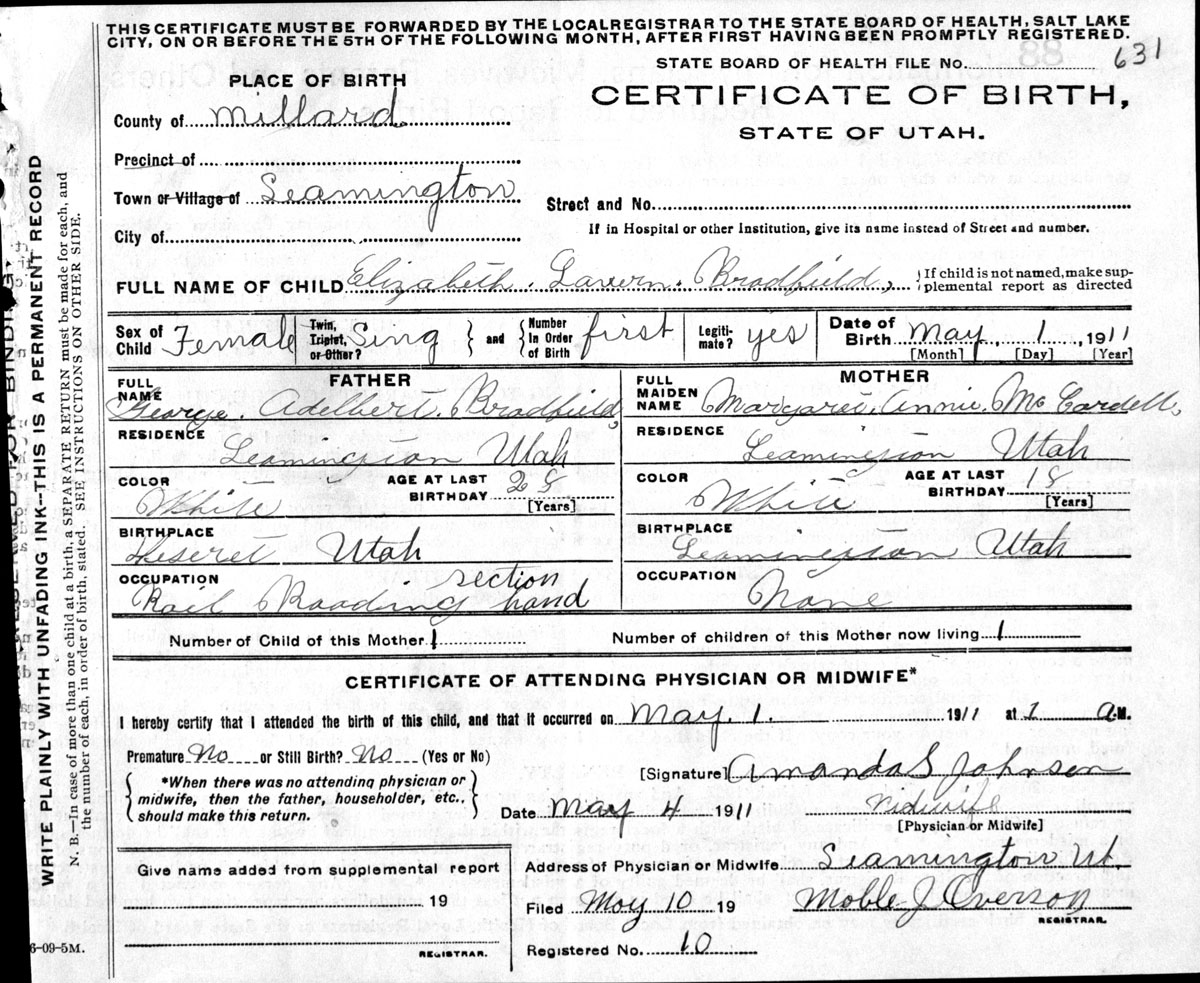 THIS CERTIFICATE MUST BE FORWARDED BY THE LOCAL REGISTRAR TO THE STATE BOARD OF HEALTH, SALT LAKE
CITY, ON OR BEFORE THE 5TH OF THE FOLLOWING MONTH, AFTER FIRST HAVING BEEN PROMPTLY REGISTERED.
STATE BOARD OF HEALTH FILE No. 631
PLACE OF BIRTH
CERTIFICATE OF BIRTH,
STATE OF UTAH.
County of Millard
Precinct of
Town or Village of Leamington
Street and No.
City of
If in Hospital or other Institution, give its name instead of Street and number.
FULL NAME OF CHILD Elizabeth Lavern Bradfield, {If child is not named, make sup-
plemental report as directed
Sex of Child Female Twin, Triplet, or Other? Sing } and { Number In Order of Birth first Legiti-mate? yes Date of Birth May 1 1911
[Month] [Day] [Year]
FATHER
MOTHER
FULL NAME George Adelbert Bradfield
FULL MAIDEN NAME Margaret Annie McCardell
RESIDENCE Leamington Utah
RESIDENCE Leamington Utah
COLOR White AGE AT LAST BIRTHDAY 28 [Years]
COLOR White AGE AT LAST BIRTHDAY 18 [Years]
BIRTHPLACE Deseret Utah
BIRTHPLACE Leamington Utah
OCCUPATION Rail Roading section hand
OCCUPATION None
Number of Child of this Mother 1 Number of children of this Mother now living 1
CERTIFICATE OF ATTENDING PHYSICIAN OR MIDWIFE*
I hereby certify that I attended the birth of this child, and that it occurred on May. 1. 1911 at 1 a.M.
Premature No or Still Birth? No (Yes or No)
*When there was no attending physician or
midwife, then the father, householder, etc.,
should make this return.
[Signature] Amanda S Johnson
Date May 4 1911 Midwife
[Physician or Midwife]
Give name added from supplemental report
19
REGISTRAR.
Address of Physician or Midwife Leamington Ut.
Filed May 10 19 Moble J Overson
REGISTRAR.
Registered No. 10
6-09-5M.
WRITE PLAINLY WITH UNFADING INK--THIS IS A PERMANENT RECORD
N. B.—In case of more than one child at a birth, a SEPARATE RETURN must be made for each, and
the number of each, in order of birth, stated. SEE INSTRUCTIONS ON OTHER SIDE.